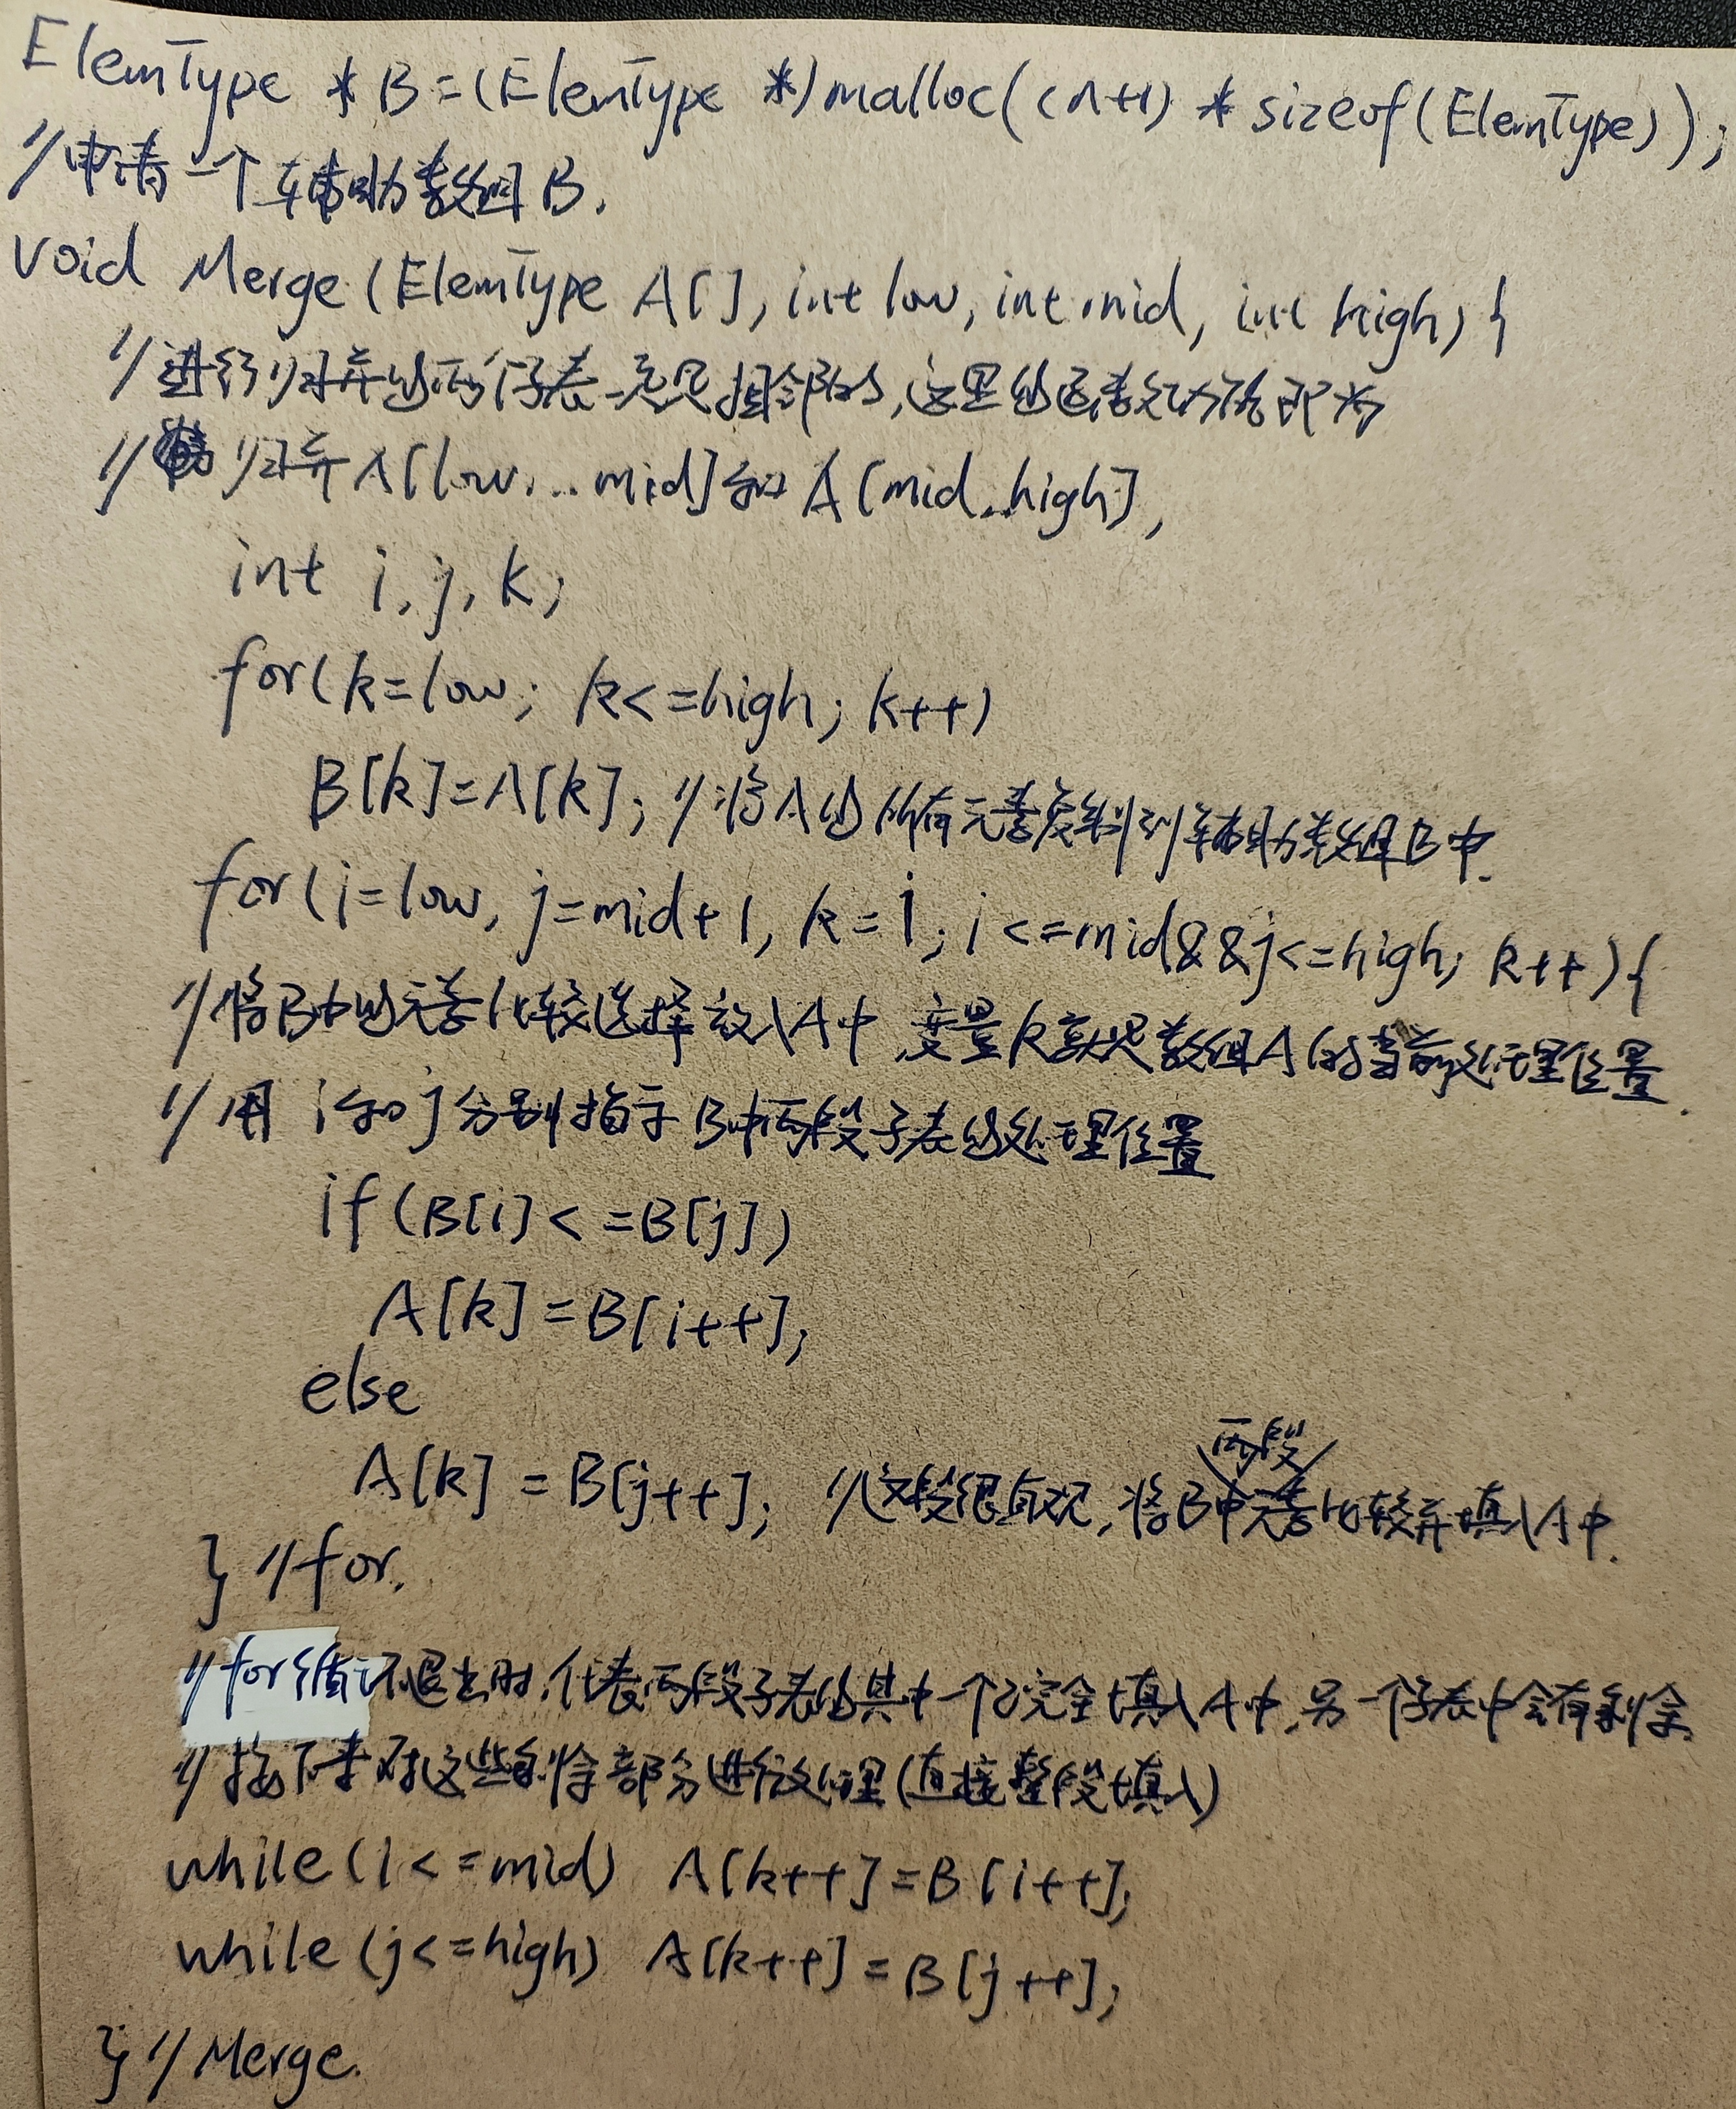 ElemType *B=(ElemType *)malloc((n+1) *sizeof(ElemType));
//申请一个辅助数组B.
void Merge(ElemType A[], int low, int mid, int high){
//进行归并的两个子表一定是相邻的,这里的函数功能即为
//归并A[low...mid]和A[mid..high],
int i,j,k;
for(k=low; k<=high; k++)
B[k]=A[k]; //将A的所有元素复制到辅助数组B中.
for(i=low, j=mid+1, k=i; i<=mid&&j<=high; k++){
//将B中的元素比较选择放入A中,变量k就是数组A的当前处理位置.
//用i和j分别指示B中两段子表的处理位置
if(B[i]<=B[j])
A[k]=B[i++];
else
A[k]=B[j++]; //这段很直观,将B中两段元素比较并填入A中.
} //for.
//for循环退出时,代表两段子表的其中一个已完全填入A中,另一个子表中会有剩余
//接下来对这些剩余部分进行处理(直接整段填入)
while(i<=mid) A[k++]=B[i++];
while(j<=high) A[k++]=B[j++];
} //Merge.